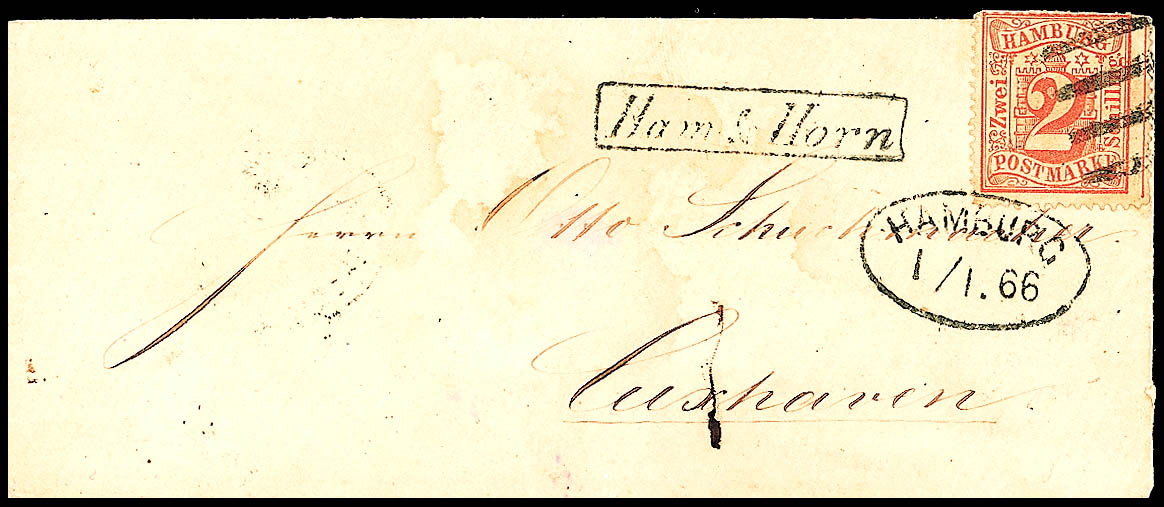 HAMBURG
Zwei 2 Schilling
POSTMARKE
Ham & Horn
Herrn Otto
HAMBURG
1/1.66
Cuxhaven.